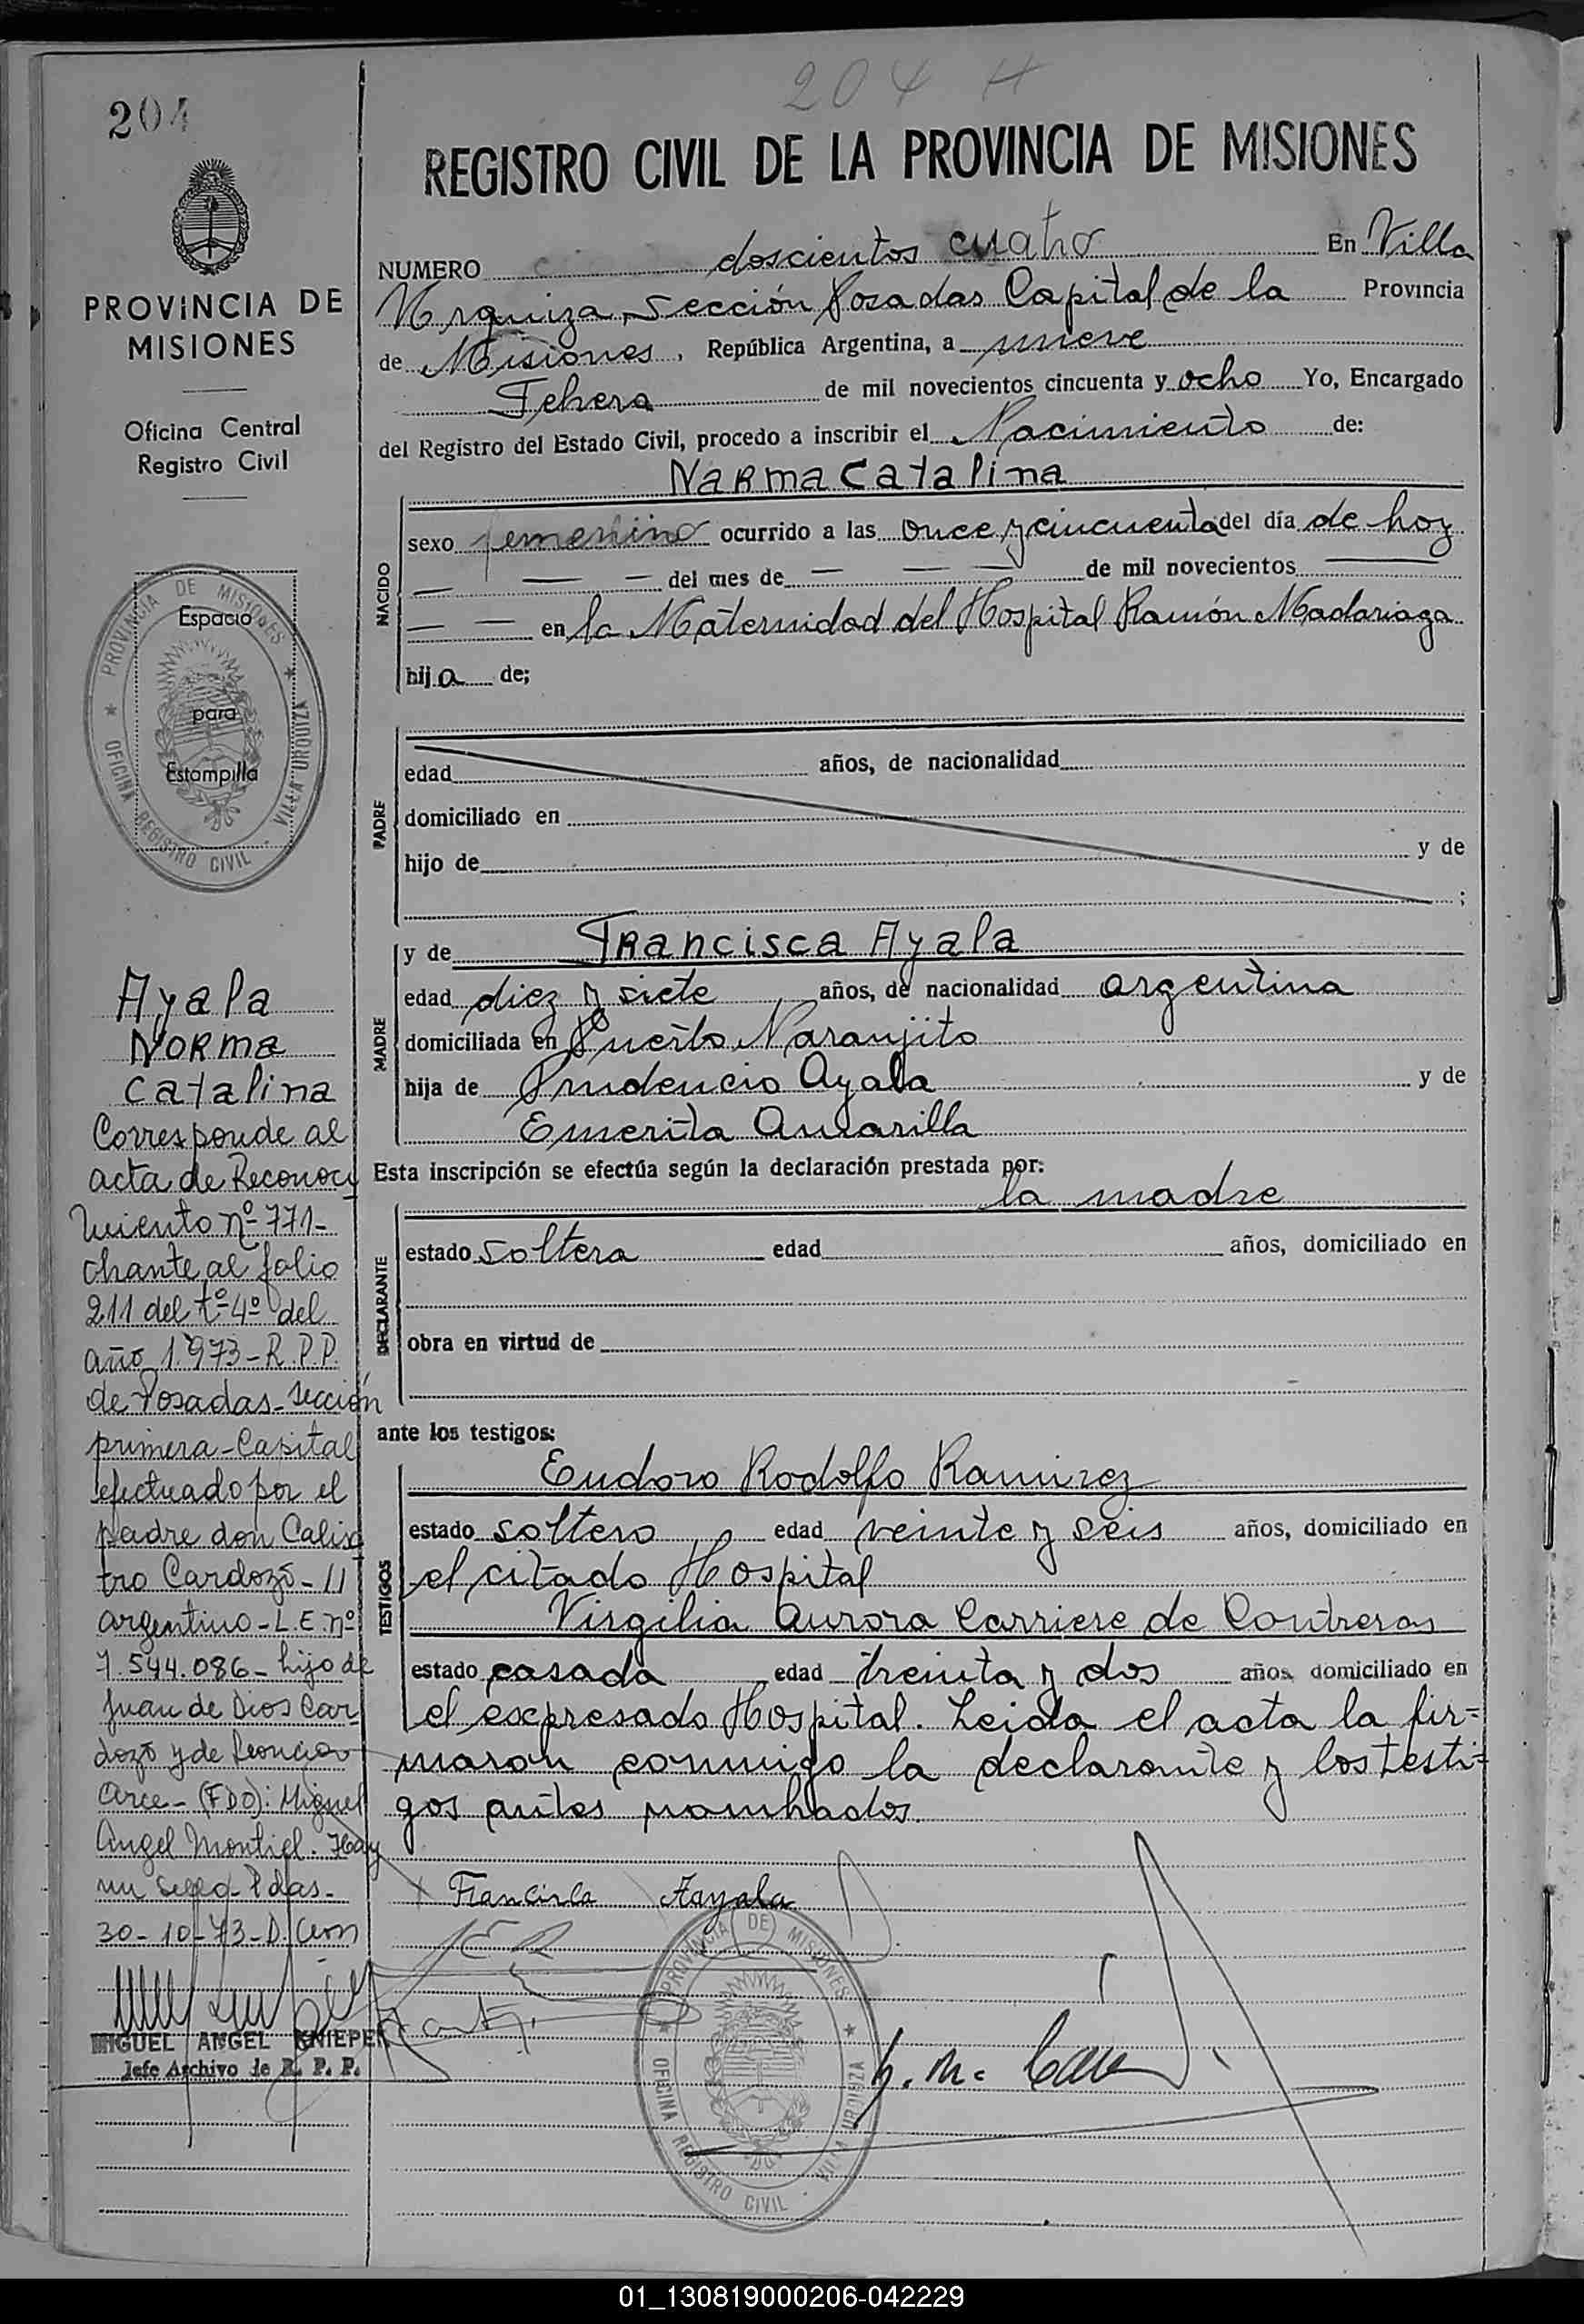 204 H
204
REGISTRO CIVIL DE LA PROVINCIA DE MISIONES
NUMERO doscientos cuatro En Villa
Urquiza, Sección Posadas Capital de la Provincia
de Misiones, República Argentina, a nueve
Febrero de mil novecientos cincuenta y ocho Yo, Encargado
del Registro del Estado Civil, procedo a inscribir el Nacimiento de:
Norma Catalina
NACIDO
sexo femenino ocurrido a las once y cincuenta del día de hoy
— — — del mes de — — — de mil novecientos —
— — en la Maternidad del Hospital Ramón Madariaga
hija de;
PADRE
edad años, de nacionalidad
domiciliado en
hijo de y de
;
MADRE
y de Francisca Ayala
edad diez y siete, años, de nacionalidad argentina
domiciliada en Puerto Naranjito
hija de Prudencio Ayala y de
Emerita Amarilla
Esta inscripción se efectúa según la declaración prestada por:
la madre
DECLARANTE
estado soltera edad años, domiciliado en
obra en virtud de
ante los testigos:
TESTIGOS
Eudoro Rodolfo Ramirez
estado soltero, edad veinte y seis años, domiciliado en
el citado Hospital
Virgilia Aurora Carriere de Contreras
estado casada edad treinta y dos años domiciliado en
el expresado Hospital. Leida el acta la fir=
maron conmigo la declarante y los testi=
gos antes nombrados.
Francisca Aayala
PROVINCIA DE MISIONES
OFICINA REGISTRO CIVIL - VILLA URQUIZA
PROVINCIA DE
MISIONES
Oficina Central
Registro Civil
PROVINCIA DE MISIONES
Espacio
para
Estampilla
OFICINA REGISTRO CIVIL - VILLA URQUIZA
Ayala
Norma
Catalina
Corresponde al
acta de Reconoci
miento nº 771-
obrante al folio
211 del tº 4º del
año 1.973- R.P.P.
de Posadas- sección
primera- Capital
efectuado por el
padre don Calix
tro Cardozo- //
argentino- L.E. nº
7.544.086- hijo de
Juan de Dios Car
dozo y de Leoncia
Arce- (FDO): Miguel
Angel Montiel. Hay
un sello- Pdas.
30-10-73- D.
MIGUEL ANGEL KNIEPER
Jefe Archivo de R. P. P.
01_130819000206-042229